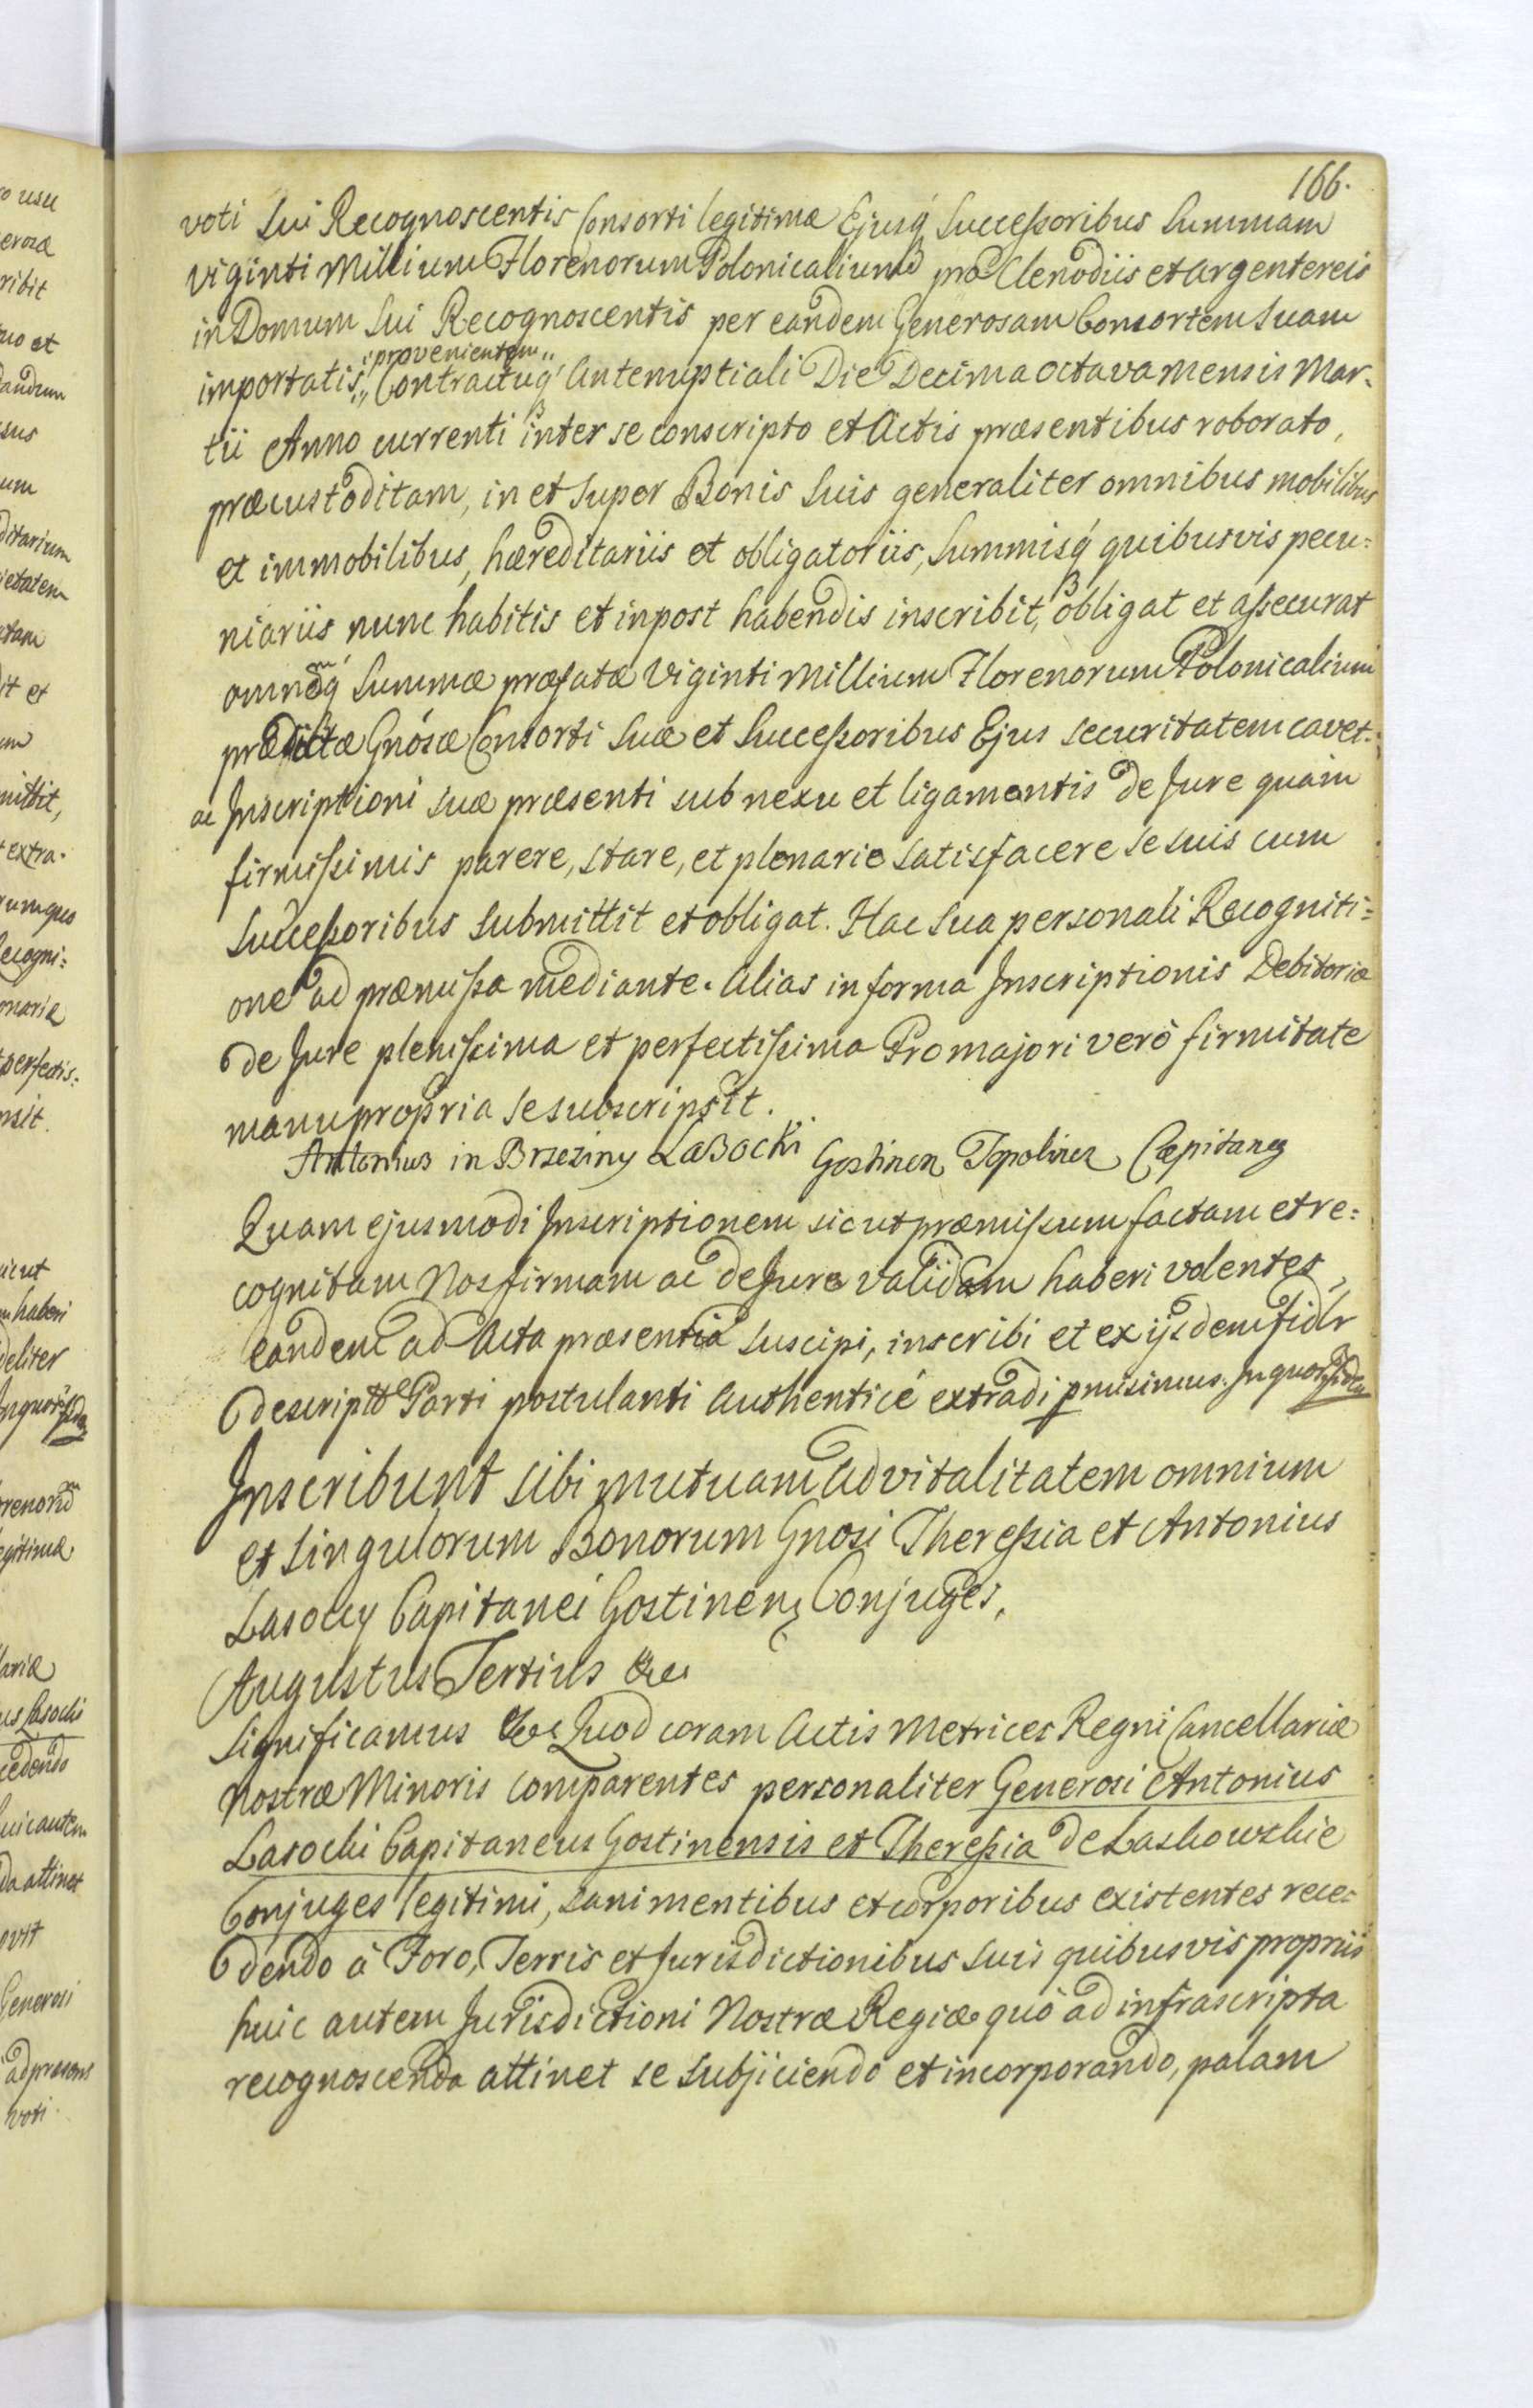 166.
voti Sui Recognoscentis Consorti legitimæ Ejusq́ Successoribus Summam
Viginti Millium Florenorum Polonicalium pro Clenodiis et Argentereis
in Domum Sui Recognoscentis per eandem Generosam Consortem Suam
"provenientem"
importatis,, Contractuq́ Antenuptiali Die Decima octava mensis Mar-
tii Anno currenti inter se conscripto et Actis præsentibus roborato,
præcustoditam, in et Super Bonis Suis generaliter omnibus mobilibus
et immobilibus, hæreditariis et obligatoriis, Summisq́ quibusvis pecu=
niariis nunc habitis et inpost habendis inscribit, obligat et assecurat
omnẽmq́ Summæ præfatæ Viginti Millium Florenorum Polonicalium
prædictæ Gnósæ Consorti Suæ et Successoribus Ejus securitatem cavet.
ac Inscriptioni suæ præsenti sub nexu et ligamentis de Jure quam
firmissimis parere, stare, et plenarie satisfacere se suis cum
Successoribus submittit et obligat. Hac Sua personali Recogniti=
one ad præmissa mediante. Alias in forma Inscriptionis Debitoriæ
de Jure plenissima et perfectissima Pro majori verò firmitate
manu propria se subscripsit.
Antonius in Brzeziny Lasocki Gostinen Topolinen Capitaneg
Quam ejusmodi Inscriptionem sicut præmissum factam et re=
cognitam Nos firmam ac de Jure validam haberi volentes,
eandem ad Acta præsentia suscipi, inscribi et ex ijsdem fidlr
descriptt Parti postulanti Authenticé extradi pmisimus. In quor fidem
Inscribunt sibi mutuam advitalitatem omnium
et singulorum Bonorum Gnosi Theressia et Antonius
Lasoccy Capitanei Gostinens Conjuges,
Augustus Tertius &c
Significamus &c Quod coram Actis Metrices Regni Cancellariæ
Nostræ Minoris comparentes personaliter Generosi Antonius
Lasocki Capitaneus Gostinensis et Theressia de Laskowskie
Conjuges legitimi, sani mentibus et corporibus existentes rece=
dendo à Foro, Terris et Jurisdictionibus suis quibusvis propriis
huic autem Jurisdictioni Nostræ Regiæ quò ad infrascripta
recognoscenda attinet se subjiciendo et incorporando, palam